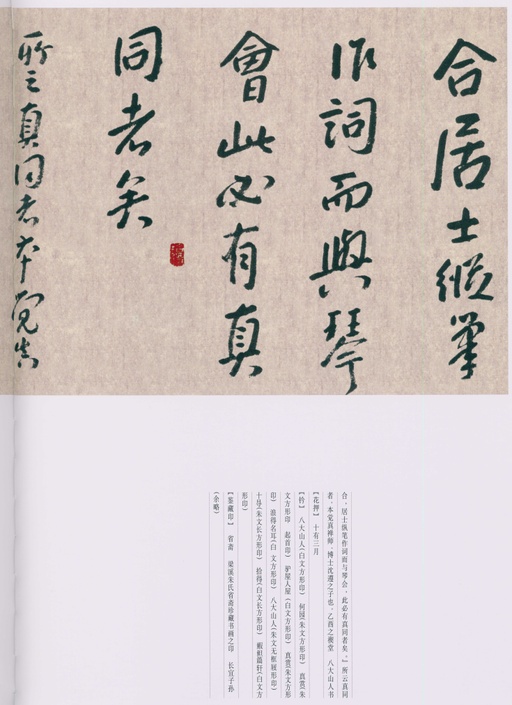 合居士縱筆
作詞而與琴
會此必有真
同者矣
所云真同者本覺真
合，居士纵笔作词而与琴会，此必有真同者矣。』所云真同
者，本觉真禅师，博士沈遵之子也。乙酉之禊堂 八大山人书
【花押】 十有三月
【钤】 八大山人（白文方形印） 何园（朱文方形印） 真赏（朱
文方形印 起首印） 驴屋人屋（白文方形印） 真赏（朱文方形
印） 谁得名耳（白文方形印） 八大山人（朱文无框屐形印）
十㝵（朱文长方形印） 拾得（白文长方形印） 遥属篇轩（白文方
形印）
【鉴藏印】 省斋 梁溪朱氏省斋珍藏书画之印 长宜子孙
（余略）